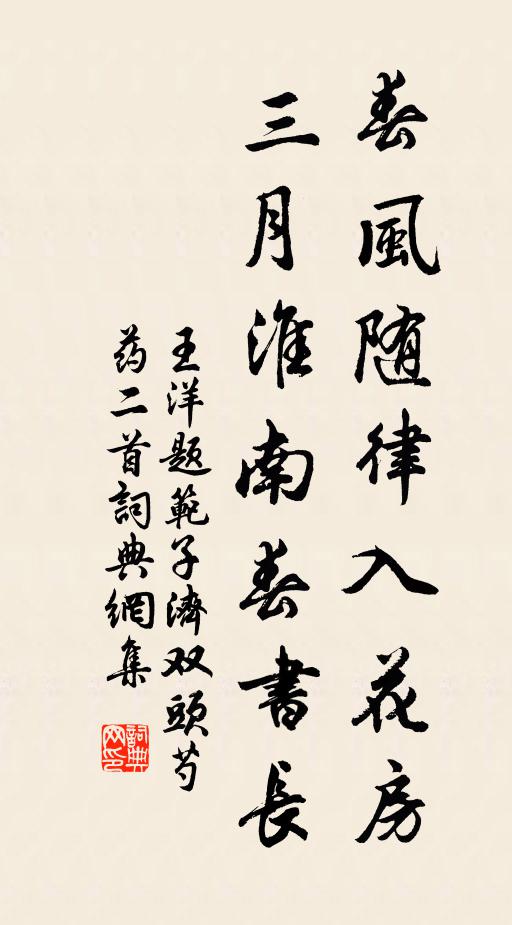 春風随律入花房
三月淮南春書長
王洋题範子濟双頭芍
药二首詞典網集
詞典网印